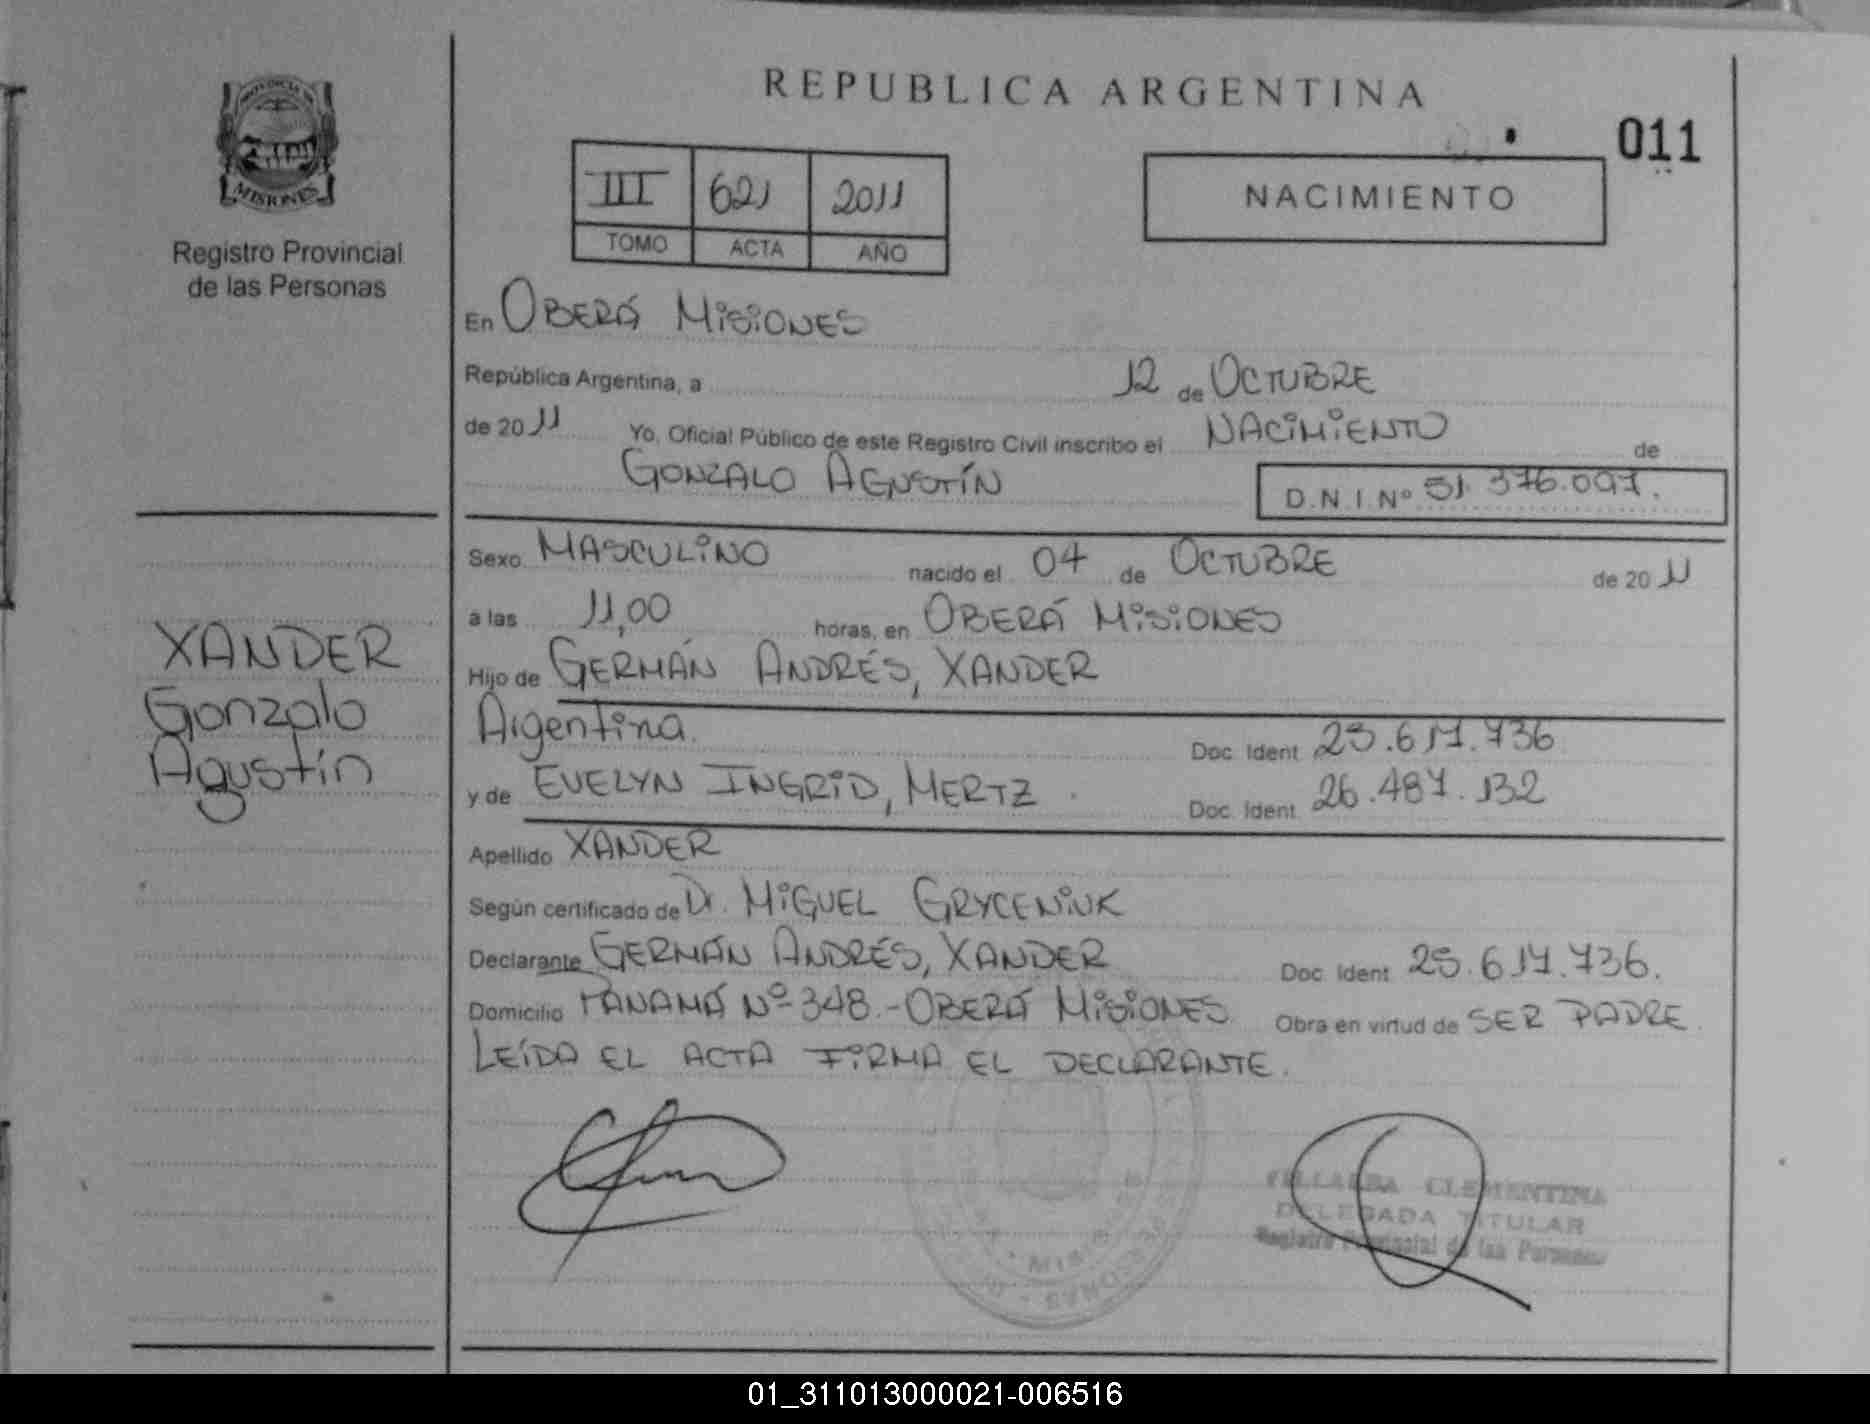 REPUBLICA ARGENTINA
011
PROVINCIA DE
MISIONES
Registro Provincial
de las Personas
III 621 2011
TOMO ACTA AÑO
NACIMIENTO
En OBERÁ MISIONES
República Argentina, a 12 de OCTUBRE
de 2011 Yo, Oficial Público de este Registro Civil inscribo el NACIMIENTO de
GONZALO AGUSTÍN D.N.I. Nº 51.376.097.
Sexo MASCULINO nacido el 04 de OCTUBRE de 2011
a las 11,00 horas, en OBERÁ MISIONES
Hijo de GERMÁN ANDRÉS, XANDER
Argentina. Doc. Ident. 25.617.736
y de EVELYN INGRID, MERTZ Doc. Ident. 26.487.132
Apellido XANDER
Según certificado de Dr. MIGUEL
Declarante GERMÁN ANDRÉS, XANDER Doc. Ident. 25.617.736.
Domicilio PANAMÁ Nº 348.-OBERÁ MISIONES Obra en virtud de SER PADRE.
LEÍDA EL ACTA FIRMA EL DECLARANTE.
XANDER
Gonzalo
Agustín
VILLALBA CLEMENTINA
DELEGADA TITULAR
Registro Provincial de las Personas
01_311013000021-006516